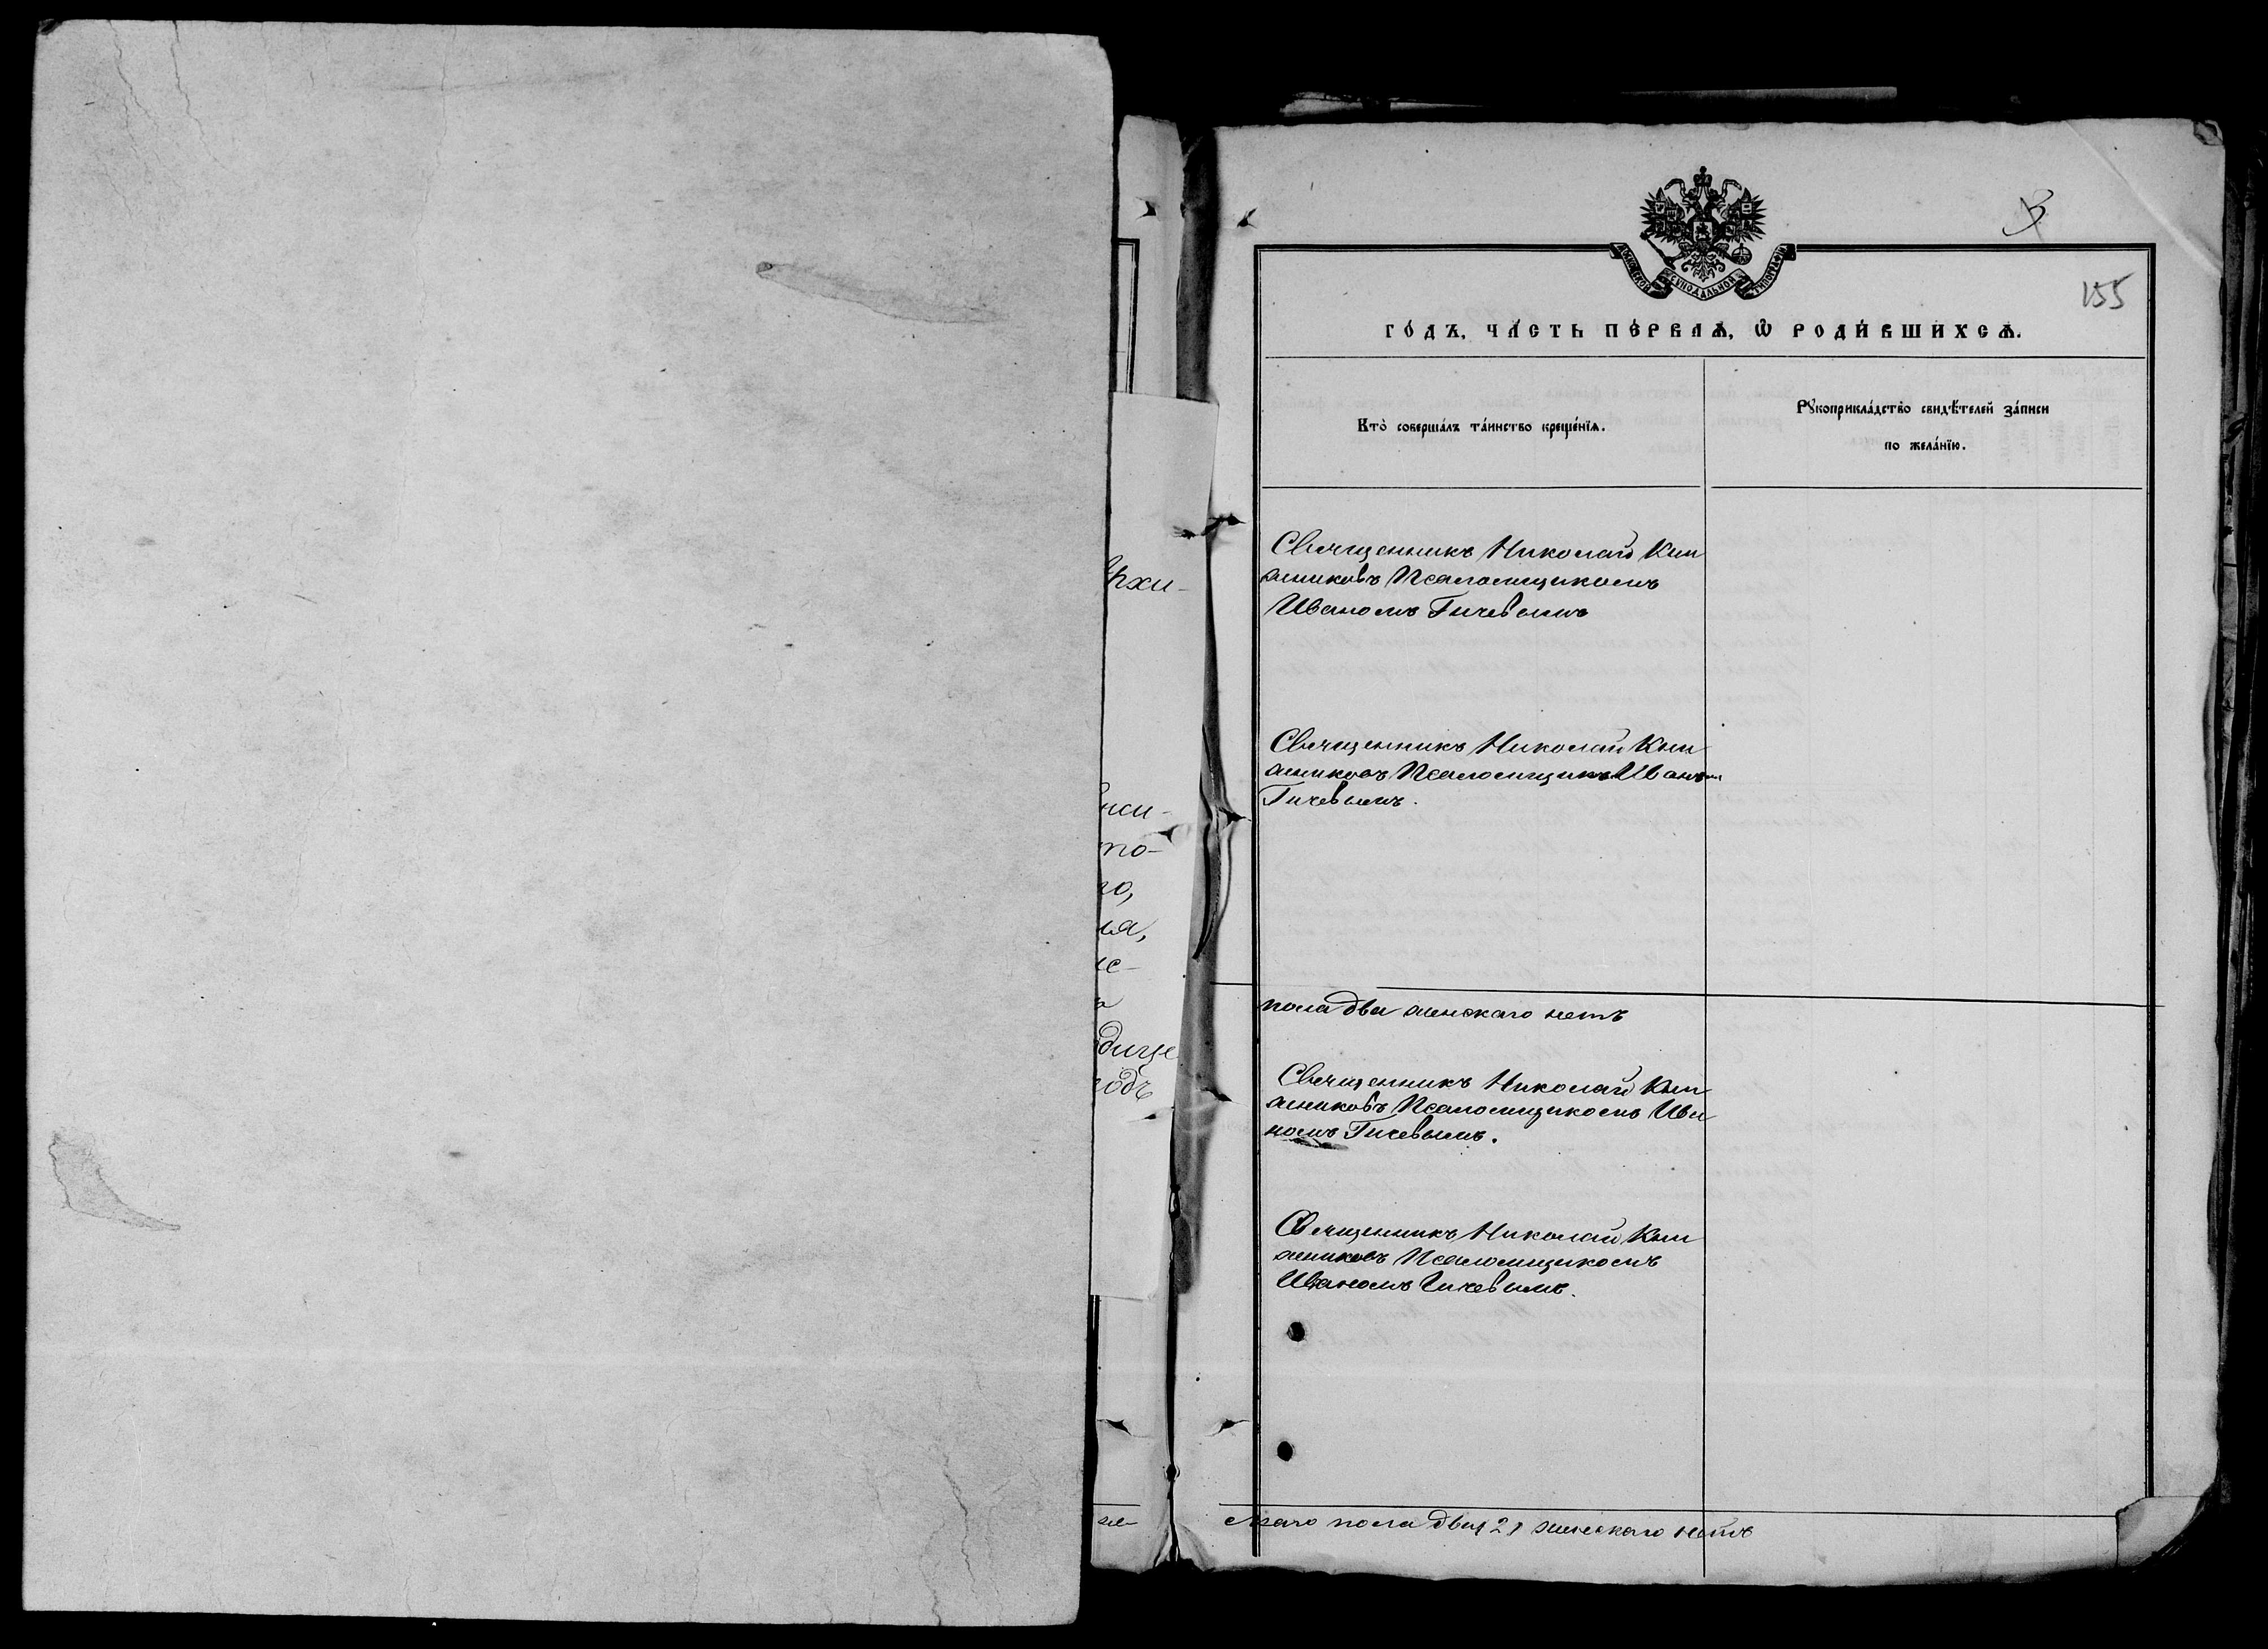 Архи-
155
МОСКОВСКОЙ СѴНОДАЛЬНОЙ ТИПОГРАФІИ
ГО́ДЪ, ЧА́СТЬ ПЕ́РВАѦ, Ѡ҆ РОДИ́ВШИХСѦ.
Кто̀ соверша́лъ та́инство креще́нїѧ.
Рꙋкоприкла́дство свидѣ́телей за́писи
по жела́нїю.
Священникъ Николай Кни
жниковъ Псаломщикомъ
Иваномъ Гичевымъ
Священникъ Николай Кни
жниковъ Псаломщикъ Иваномъ
Гичевымъ.
пола два женскаго нетъ
Священникъ Николай Кни
жниковъ Псаломщикомъ Ива
номъ Гичевымъ.
Священникъ Николай Кни
жниковъ Псаломщикомъ
Иваномъ Гичевымъ.
пола два 2, женскаго нетъ